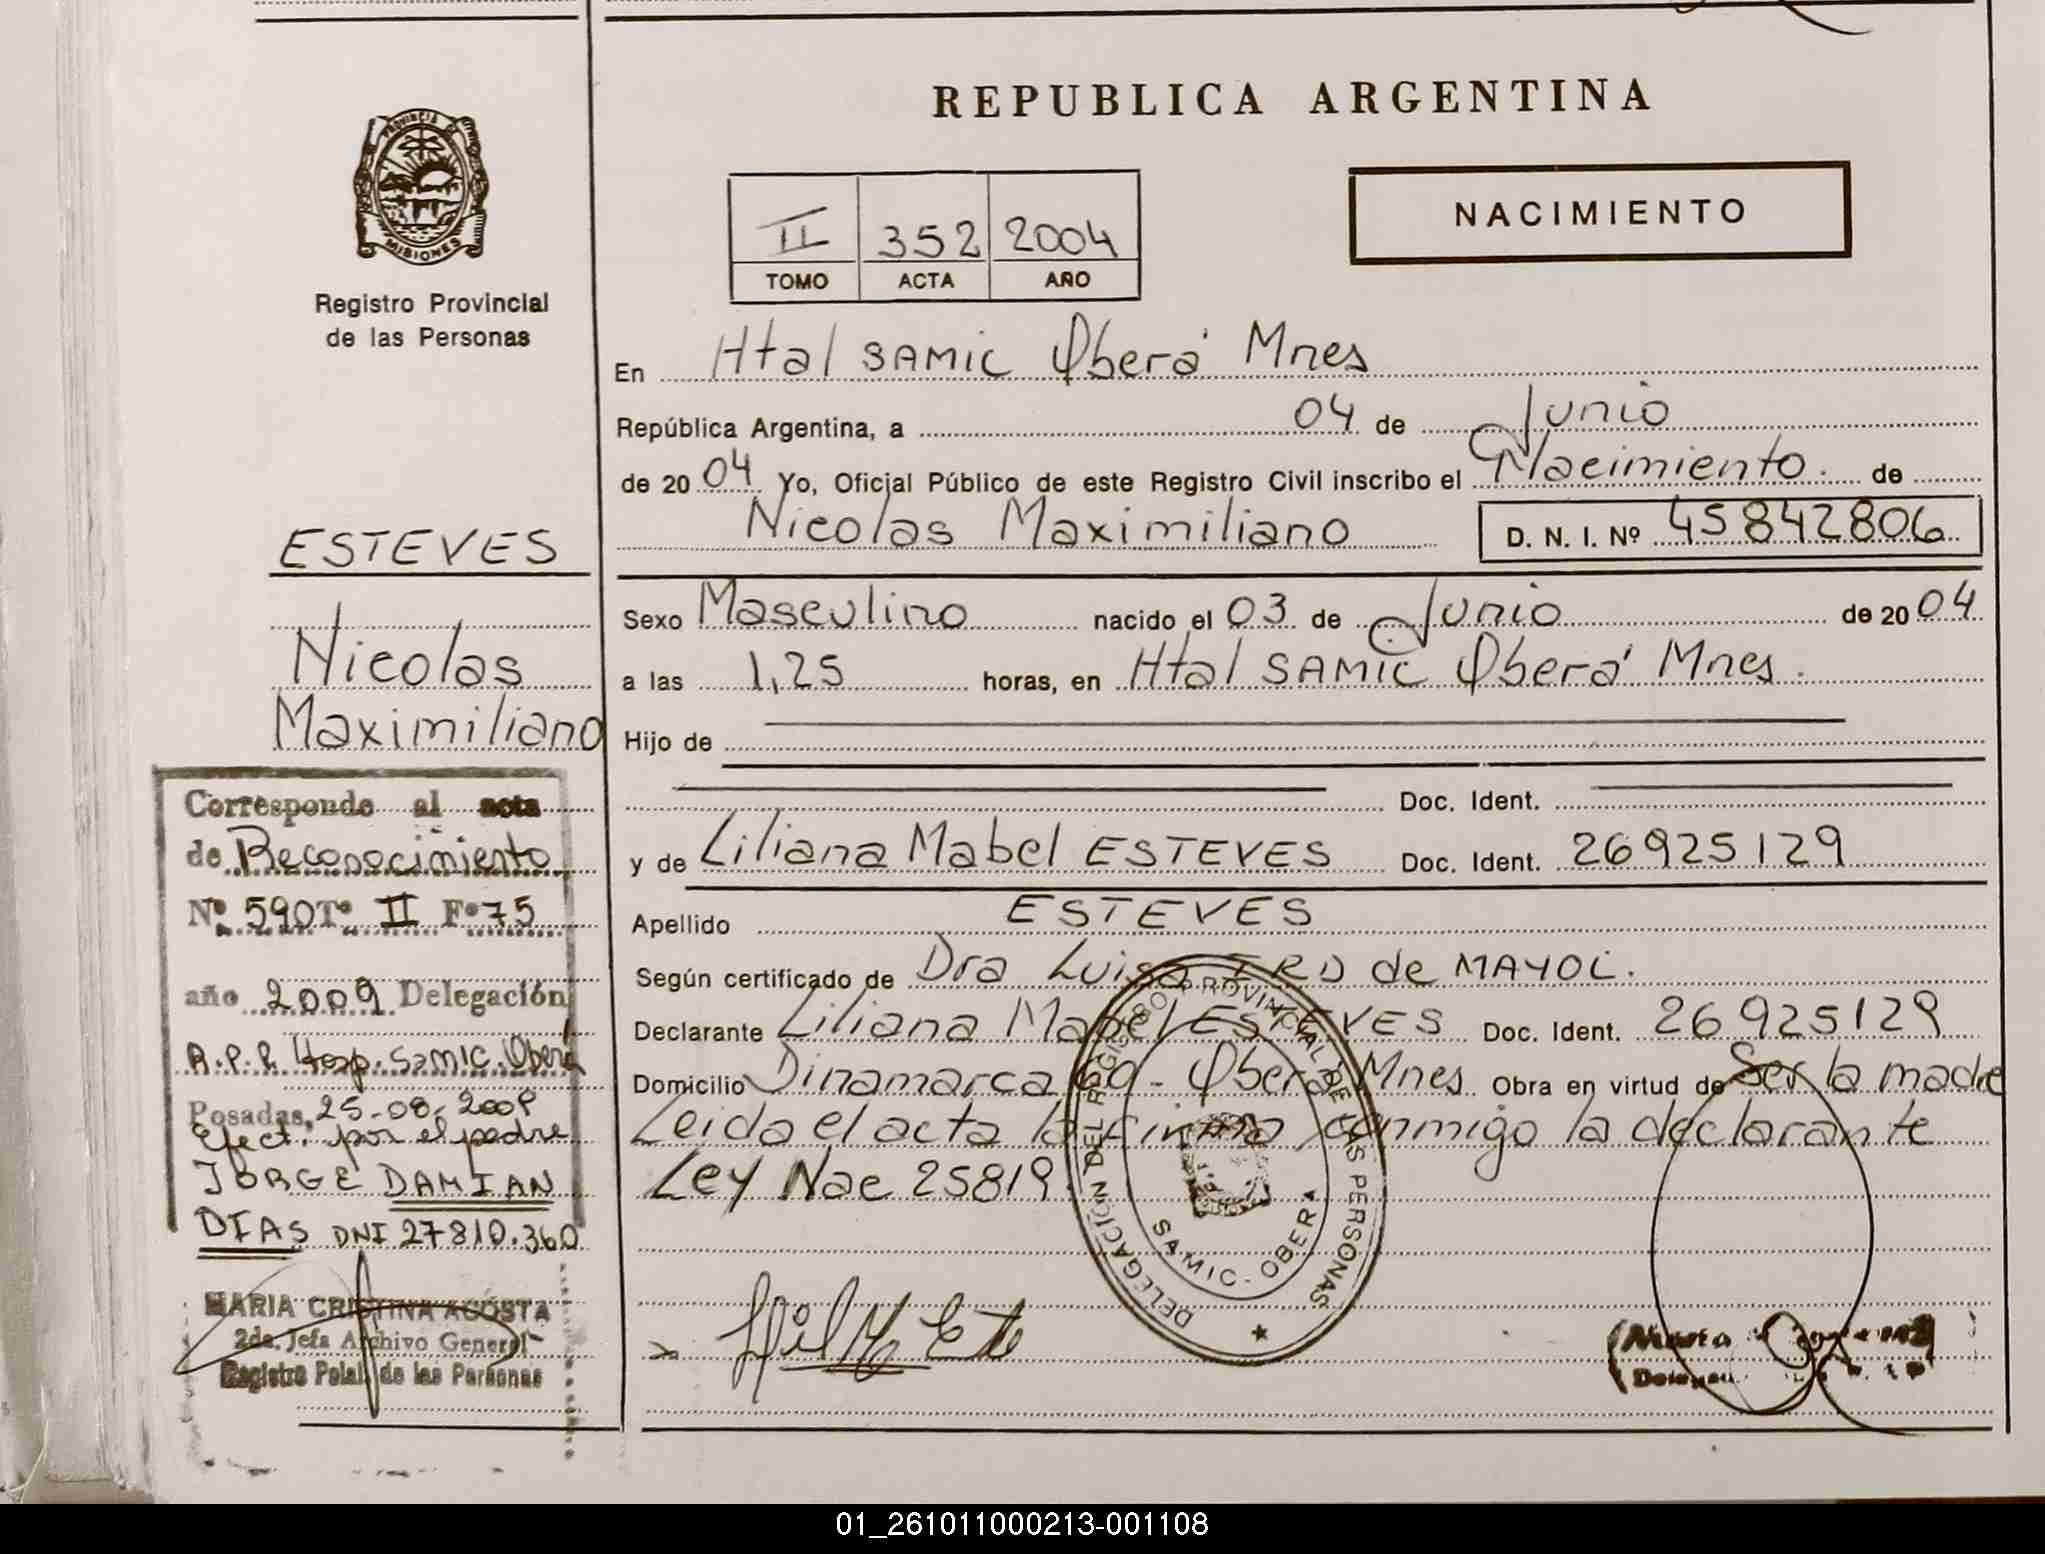 REPUBLICA ARGENTINA
PROVINCIA DE
MISIONES
Registro Provincial
de las Personas
NACIMIENTO
II 352 2004
TOMO ACTA AÑO
En Htal SAMIC Oberá Mnes
República Argentina, a 04 de Junio
de 2004 Yo, Oficial Público de este Registro Civil inscribo el Nacimiento. de
Nicolas Maximiliano D. N. I. Nº 45842806
Sexo Masculino nacido el 03 de Junio de 2004
a las 1,25 horas, en Htal SAMIC Oberá Mnes.
Hijo de
Doc. Ident.
y de Liliana Mabel ESTEVES Doc. Ident. 26925129
Apellido ESTEVES
Según certificado de Dra Luisa de MAYOL.
Declarante Liliana Mabel ESTEVES Doc. Ident. 26925129
Domicilio Dinamarca - Oberá Mnes Obra en virtud de Ser la madre
Leida el acta la firma conmigo la declarante
Ley Nac 25819.
DELEGACIÓN DEL REGISTRO PROVINCIAL DE LAS PERSONAS
SAMIC - OBERA
ESTEVES
Nicolas
Maximiliano
Corresponde al acta
de Reconocimiento
Nº 590 Tº II Fº 75
año 2009 Delegación
R.P.P. Hosp. SAMIC. Oberá
Posadas, 25-08-2009
Efect. por el padre
JORGE DAMIAN
DIAS DNI 27810.360
MARIA CRISTINA ACOSTA
2da. Jefa Archivo General
Registro Pcial. de las Personas
01_261011000213-001108